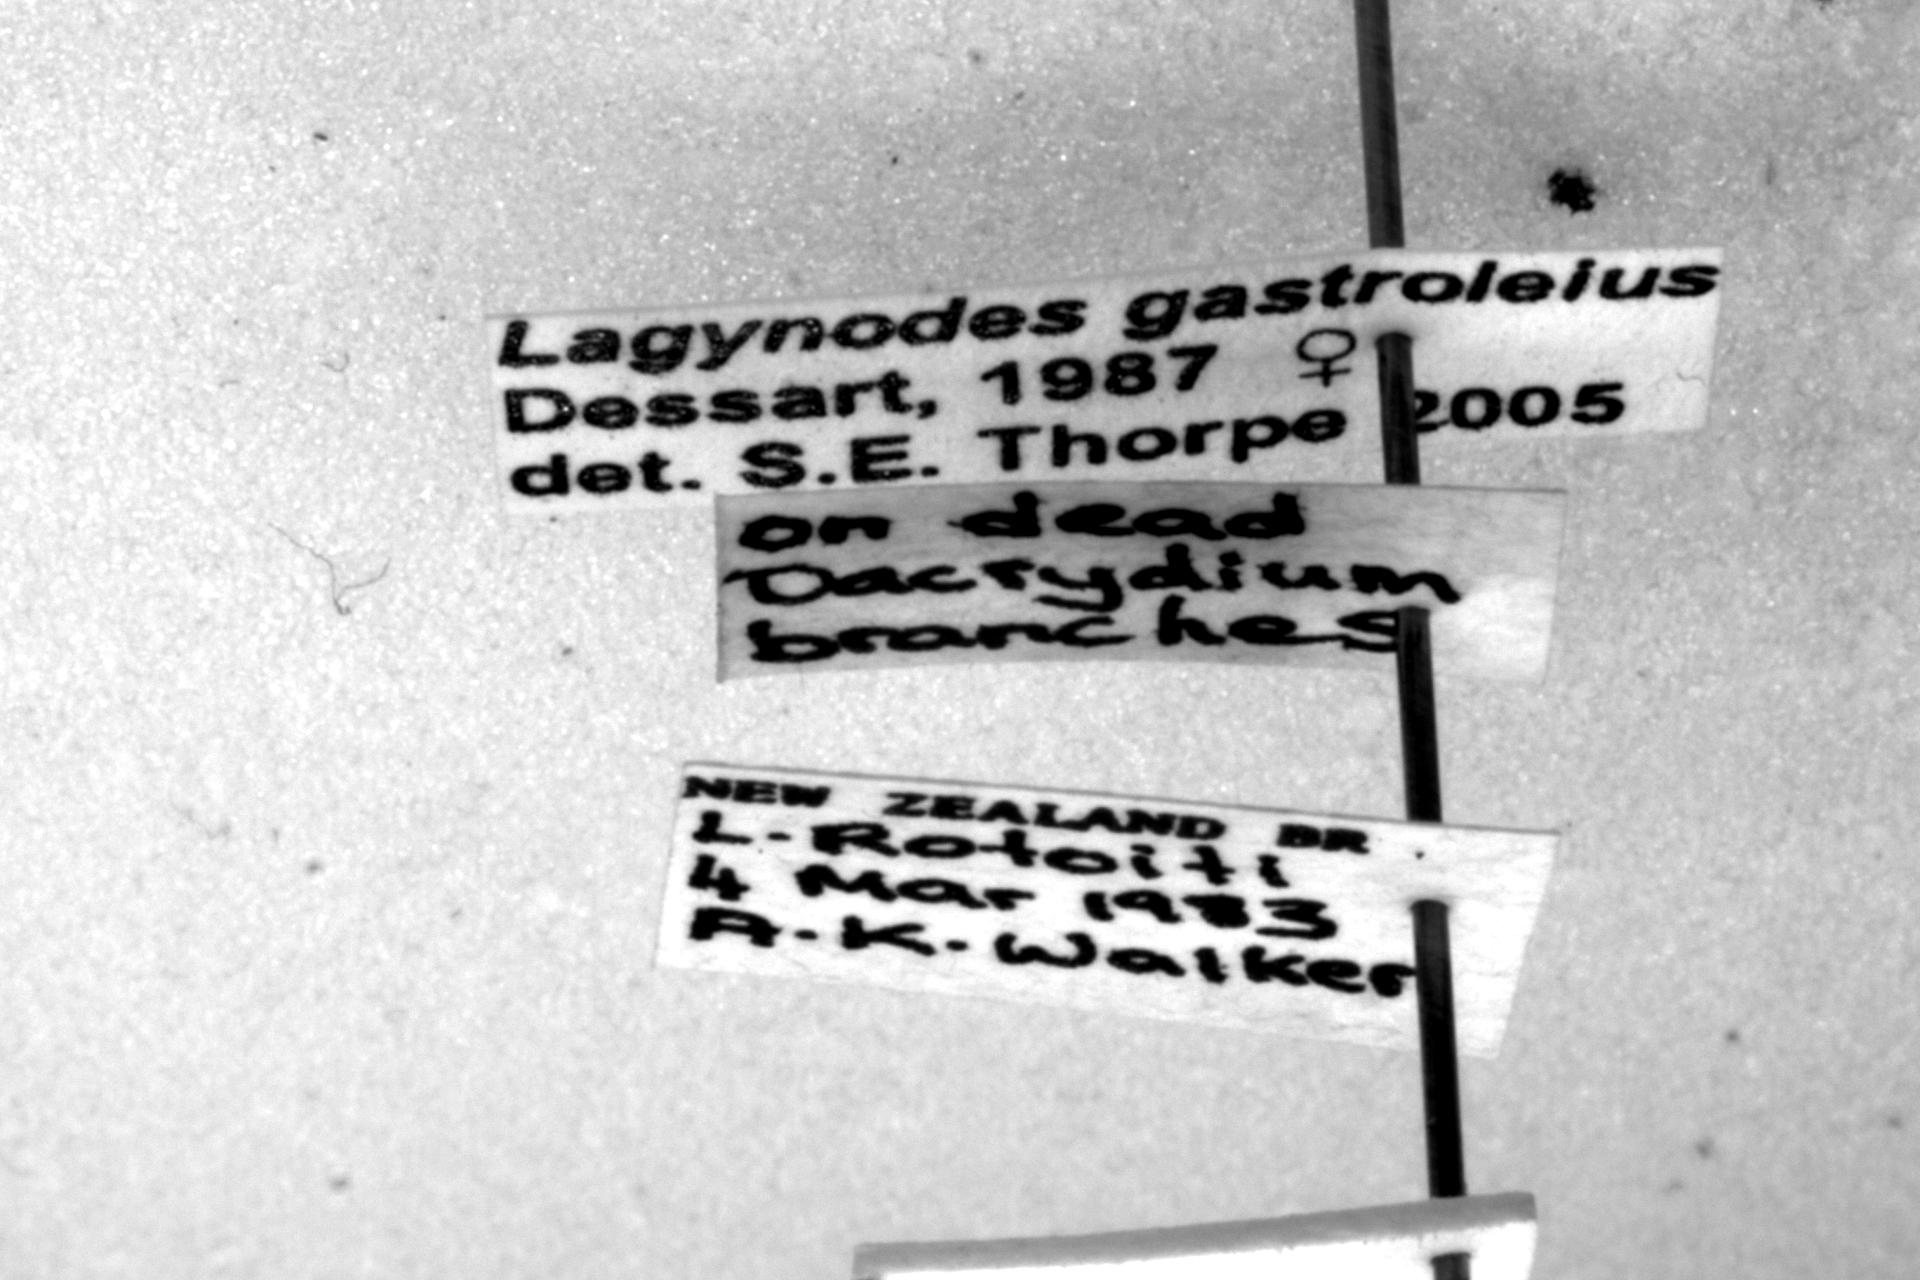 Lagynodes gastroleius
Dessart, 1987 ♀
det. S.E. Thorpe 2005
on dead
Dacrydium
branches
NEW ZEALAND BR
L. Rotoiti
4 Mar 1983
A.K. Walker